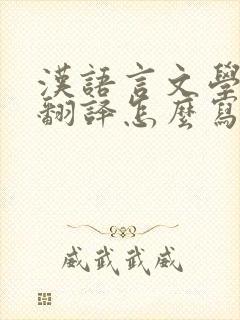 漢語言文學
翻譯怎麼寫
威武武威